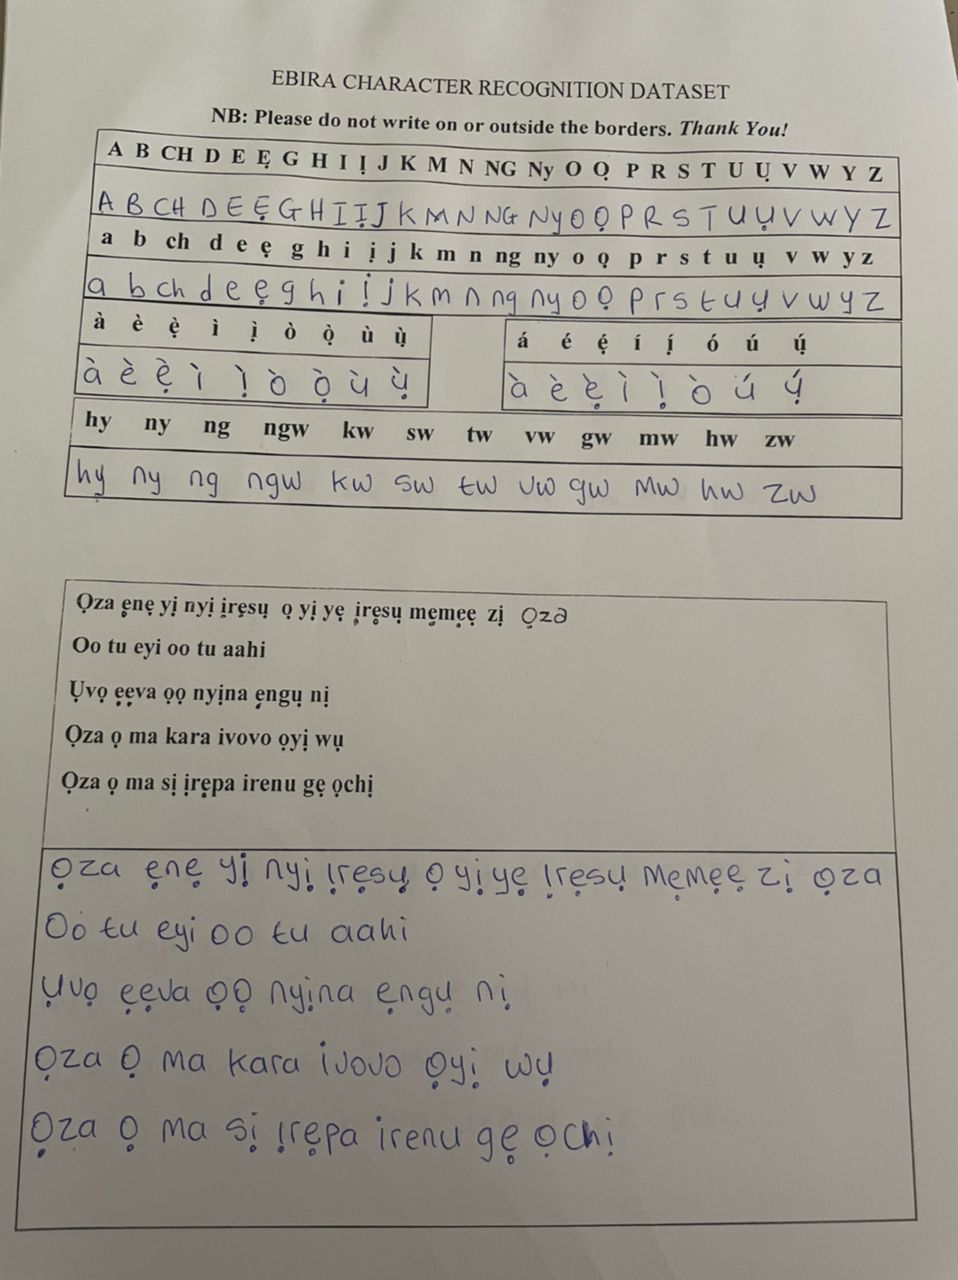 EBIRA CHARACTER RECOGNITION DATASET
NB: Please do not write on or outside the borders. Thank You!
A B CH D E Ẹ G H I Ị J K M N NG Ny O Ọ P R S T U Ụ V W Y Z
A B CH D E Ẹ G H I Ị J K M N NG Ny O Ọ P R S T U Ụ V W Y Z
a b ch d e ẹ g h i ị j k m n ng ny o ọ p r s t u ụ v w y z
a b ch d e ẹ g h i ị j k m n ng ny o ọ p r s t u ụ v w y z
à è ẹ̀ ì ị̀ ò ọ̀ ù ụ̀ á é ẹ́ í ị́ ó ú ụ́
à è ẹ̀ ì ị̀ ò ọ̀ ù ụ̀ à è ẹ̀ ì ị̀ ò ú ụ́
hy ny ng ngw kw sw tw vw gw mw hw zw
hy ny ng ngw kw sw tw vw gw mw hw zw
Ọza ẹnẹ yị nyị ịrẹsụ ọ yị yẹ ịrẹsụ mẹmẹẹ zị ọza
Oo tu eyi oo tu aahi
Ụvọ ẹẹva ọọ nyịna ẹngụ nị
Ọza ọ ma kara ivovo ọyị wụ
Ọza ọ ma sị ịrẹpa irenu gẹ ọchị
Ọza ẹnẹ yị nyị ịrẹsụ ọ yị yẹ ịrẹsụ mẹmẹẹ zị ọza
Oo tu eyi oo tu aahi
Ụvọ ẹẹva ọọ nyịna ẹngụ nị
Ọza Ọ ma kara ivovo ọyị wụ
Ọza ọ ma sị ịrẹpa irenu gẹ ọchị